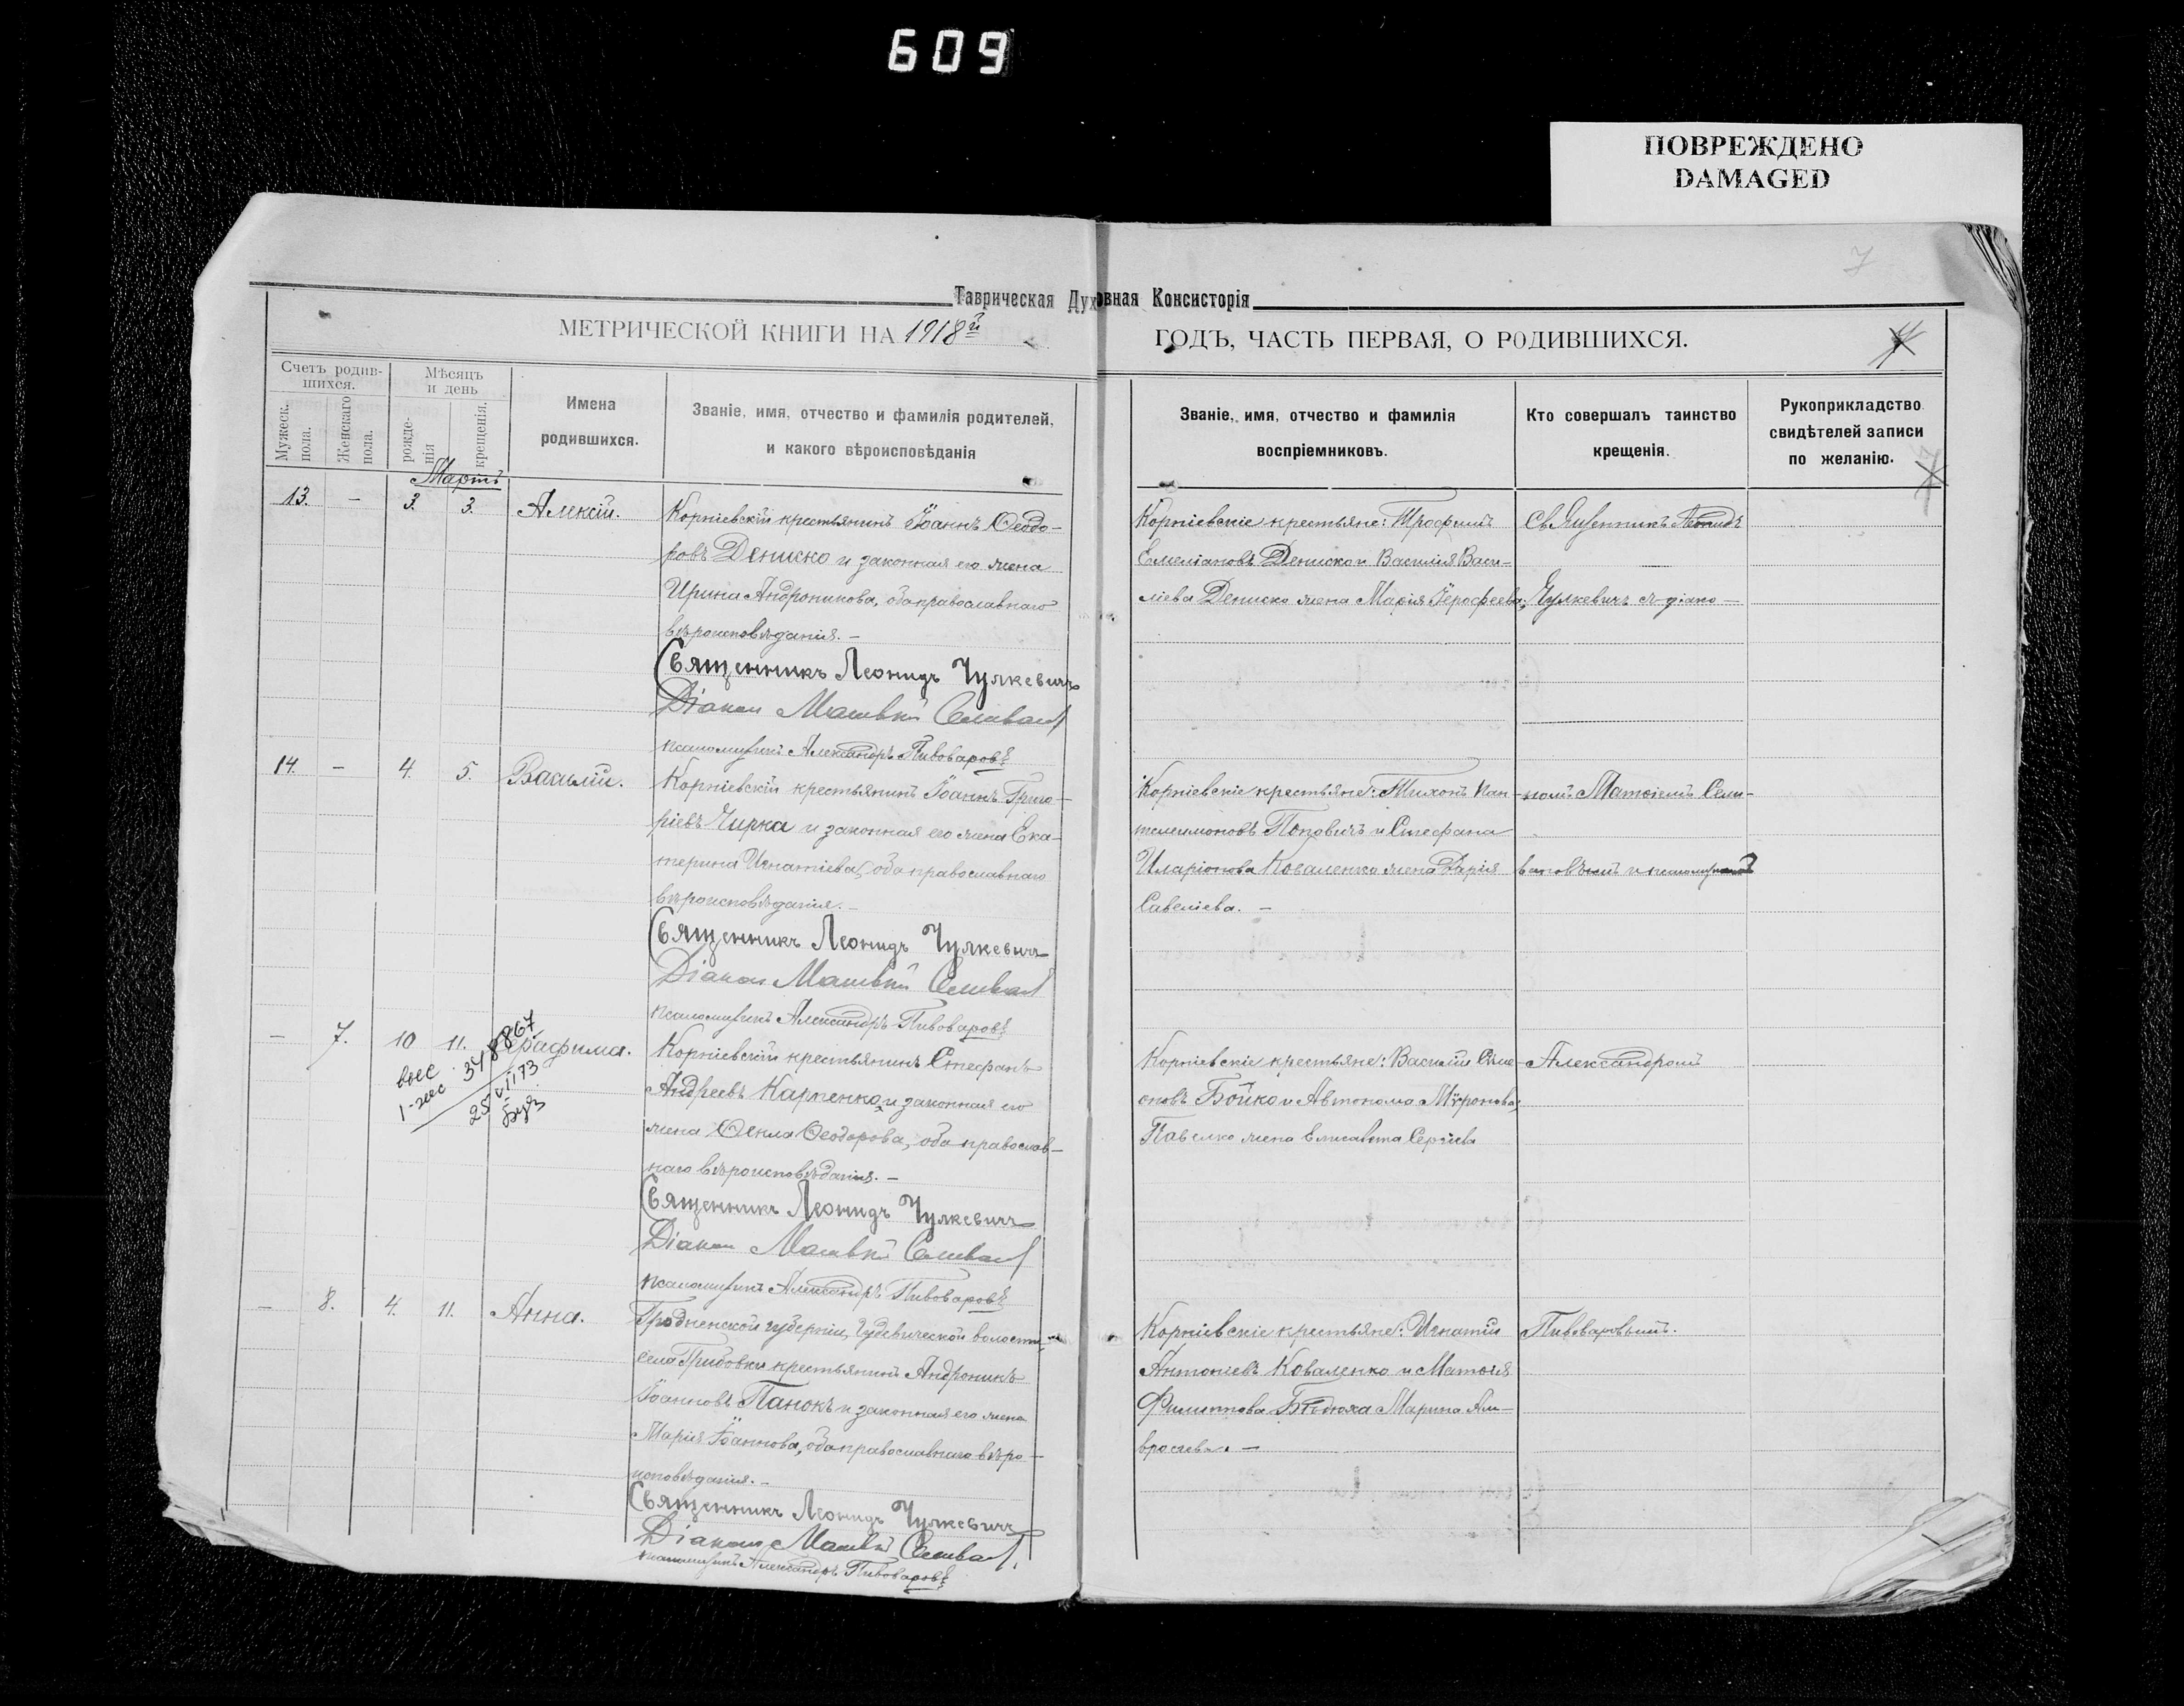 609
ПОВРЕЖДЕНО
DAMAGED
7
Таврическая Духовная Консисторія
МЕТРИЧЕСКОЙ КНИГИ НА 1918й ГОДЪ, ЧАСТЬ ПЕРВАЯ, О РОДИВШИХСЯ.
Счетъ родив-
шихся.
Мужеск.
пола.
Женскаго
пола.
Мѣсяцъ
и день
рожде-
нія
крещенія.
Имена
родившихся.
Званіе, имя, отчество и фамилія родителей,
и какого вѣроисповѣданія
Званіе, имя, отчество и фамилія
воспріемниковъ.
Кто совершалъ таинство
крещенія.
Рукоприкладство
свидѣтелей записи
по желанію.
Мартъ
13. — 3. 3. Алексій.
Корніевскій крестьянинъ Іоаннъ Ѳеодо-
ровъ Дениско и законная его жена
Ирина Андроникова, оба православнаго
вѣроисповѣданія. —
Священникъ Леонидъ Чулкевичъ
Діакон Матвѣй
псаломщикъ Александръ Пивоваровъ
Корніевскіе крестьяне: Трофимъ
Емеліановъ Дениско и Василія Васи-
ліева Дениско жена Марія Іерофеева.
Священникъ Леонидъ
Чулкевичъ съ діако-
14. — 4. 5. Василій.
Корніевскій крестьянинъ Іоаннъ Григо-
ріевъ Чирка и законная его жена Ека-
терина Игнатіева, оба православнаго
вѣроисповѣданія. —
Священникъ Леонидъ Чулкевичъ
Діакон Матвѣй
псаломщикъ Александръ Пивоваровъ
Корніевскіе крестьяне: Тихонъ Пан-
телеимоновъ Поповичъ и Стефана
Иларіонова Коваленко жена Дарія
Савеліева. —
номъ Матѳіемъ Сели-
вановымъ и псаломщикомъ
— 7. 10 11. Серафима.
348867
25 VI 73
Корніевскій крестьянинъ Стефанъ
Андреевъ Карпенко и законная его
жена Ѳекла Ѳеодорова, оба православ-
наго вѣроисповѣданія. —
Священникъ Леонидъ Чулкевичъ
Діакон Матвѣй
псаломщикъ Александръ Пивоваровъ
Корніевскіе крестьяне: Василій Симе-
оновъ Бойко и Автонома Мѵронова
Павелко жена Елисавета Сергіева
Александромъ
— 8. 4. 11. Анна.
Гродненской губерніи, волости
села Грибовки крестьянинъ Андроникъ
Іоанновъ Панокъ и законная его жена
Марія Іоаннова, оба православнаго вѣро-
исповѣданія. —
Священникъ Леонидъ Чулкевичъ
Діакон Матвѣй
псаломщикъ Александръ Пивоваровъ
Корніевскіе крестьяне: Игнатій
Антоніевъ Коваленко и Матѳія
Филиппова Марина Ам-
вросіева. —
Пивоваровымъ.